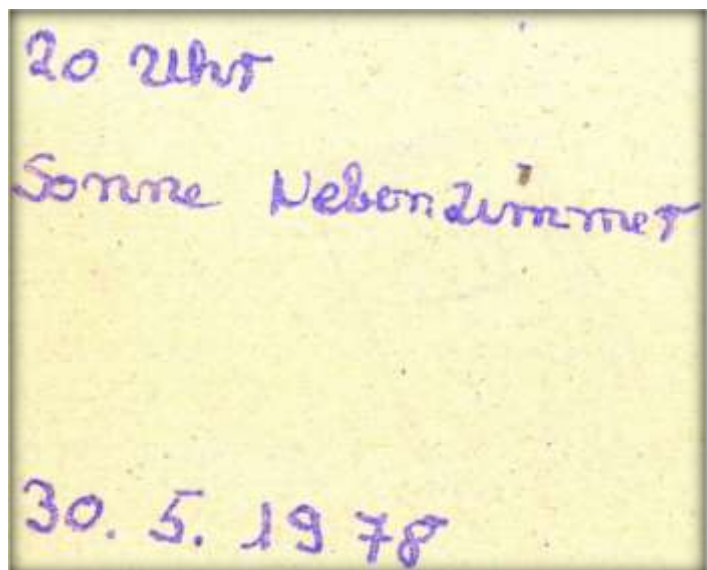 20 Uhr
Sonne Nebenzimmer
30. 5. 1978